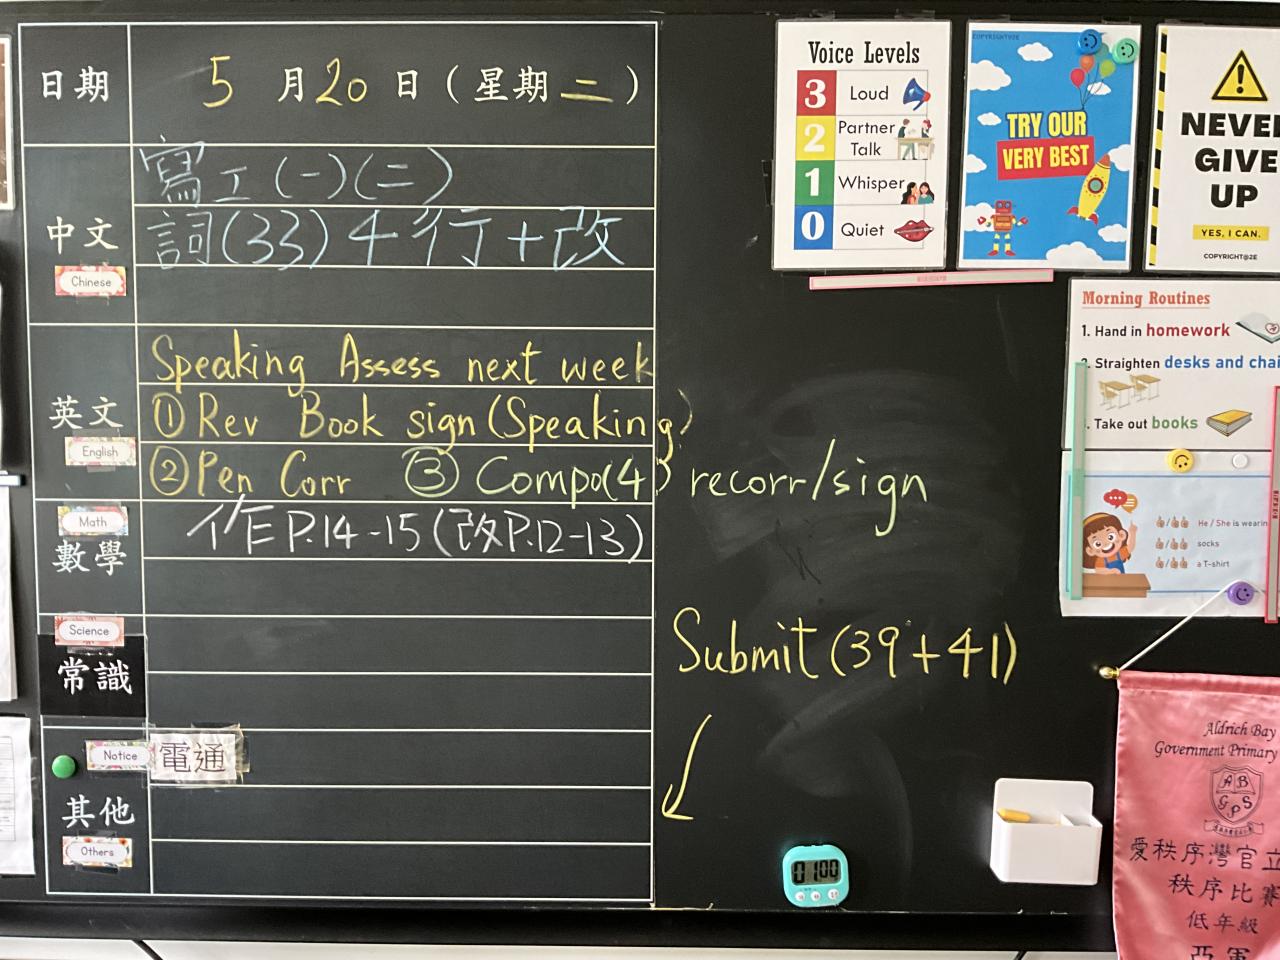 日期
5月20日(星期二)
中文
Chinese
寫工(一)(二)
詞(33)4行+改
英文
English
Speaking Assess next week
①Rev Book sign(Speaking)
②Pen Corr ③Compo(4) recorr/sign
Math
數學
作P.14-15(改P.12-13)
Science
常識
Notice
電通
其他
Others
Submit(39+41)
01:00
Voice Levels
3 Loud
2 Partner Talk
1 Whisper
0 Quiet
COPYRIGHT@2E
TRY OUR
VERY BEST
NEVER
GIVE
UP
YES, I CAN.
COPYRIGHT@2E
Morning Routines
1. Hand in homework
2. Straighten desks and chai
3. Take out books
He / She is wearin
socks
a T-shirt
Aldrich Bay
Government Primary
A B
G P S
愛秩序灣官立
秩序比賽
低年級
亞軍